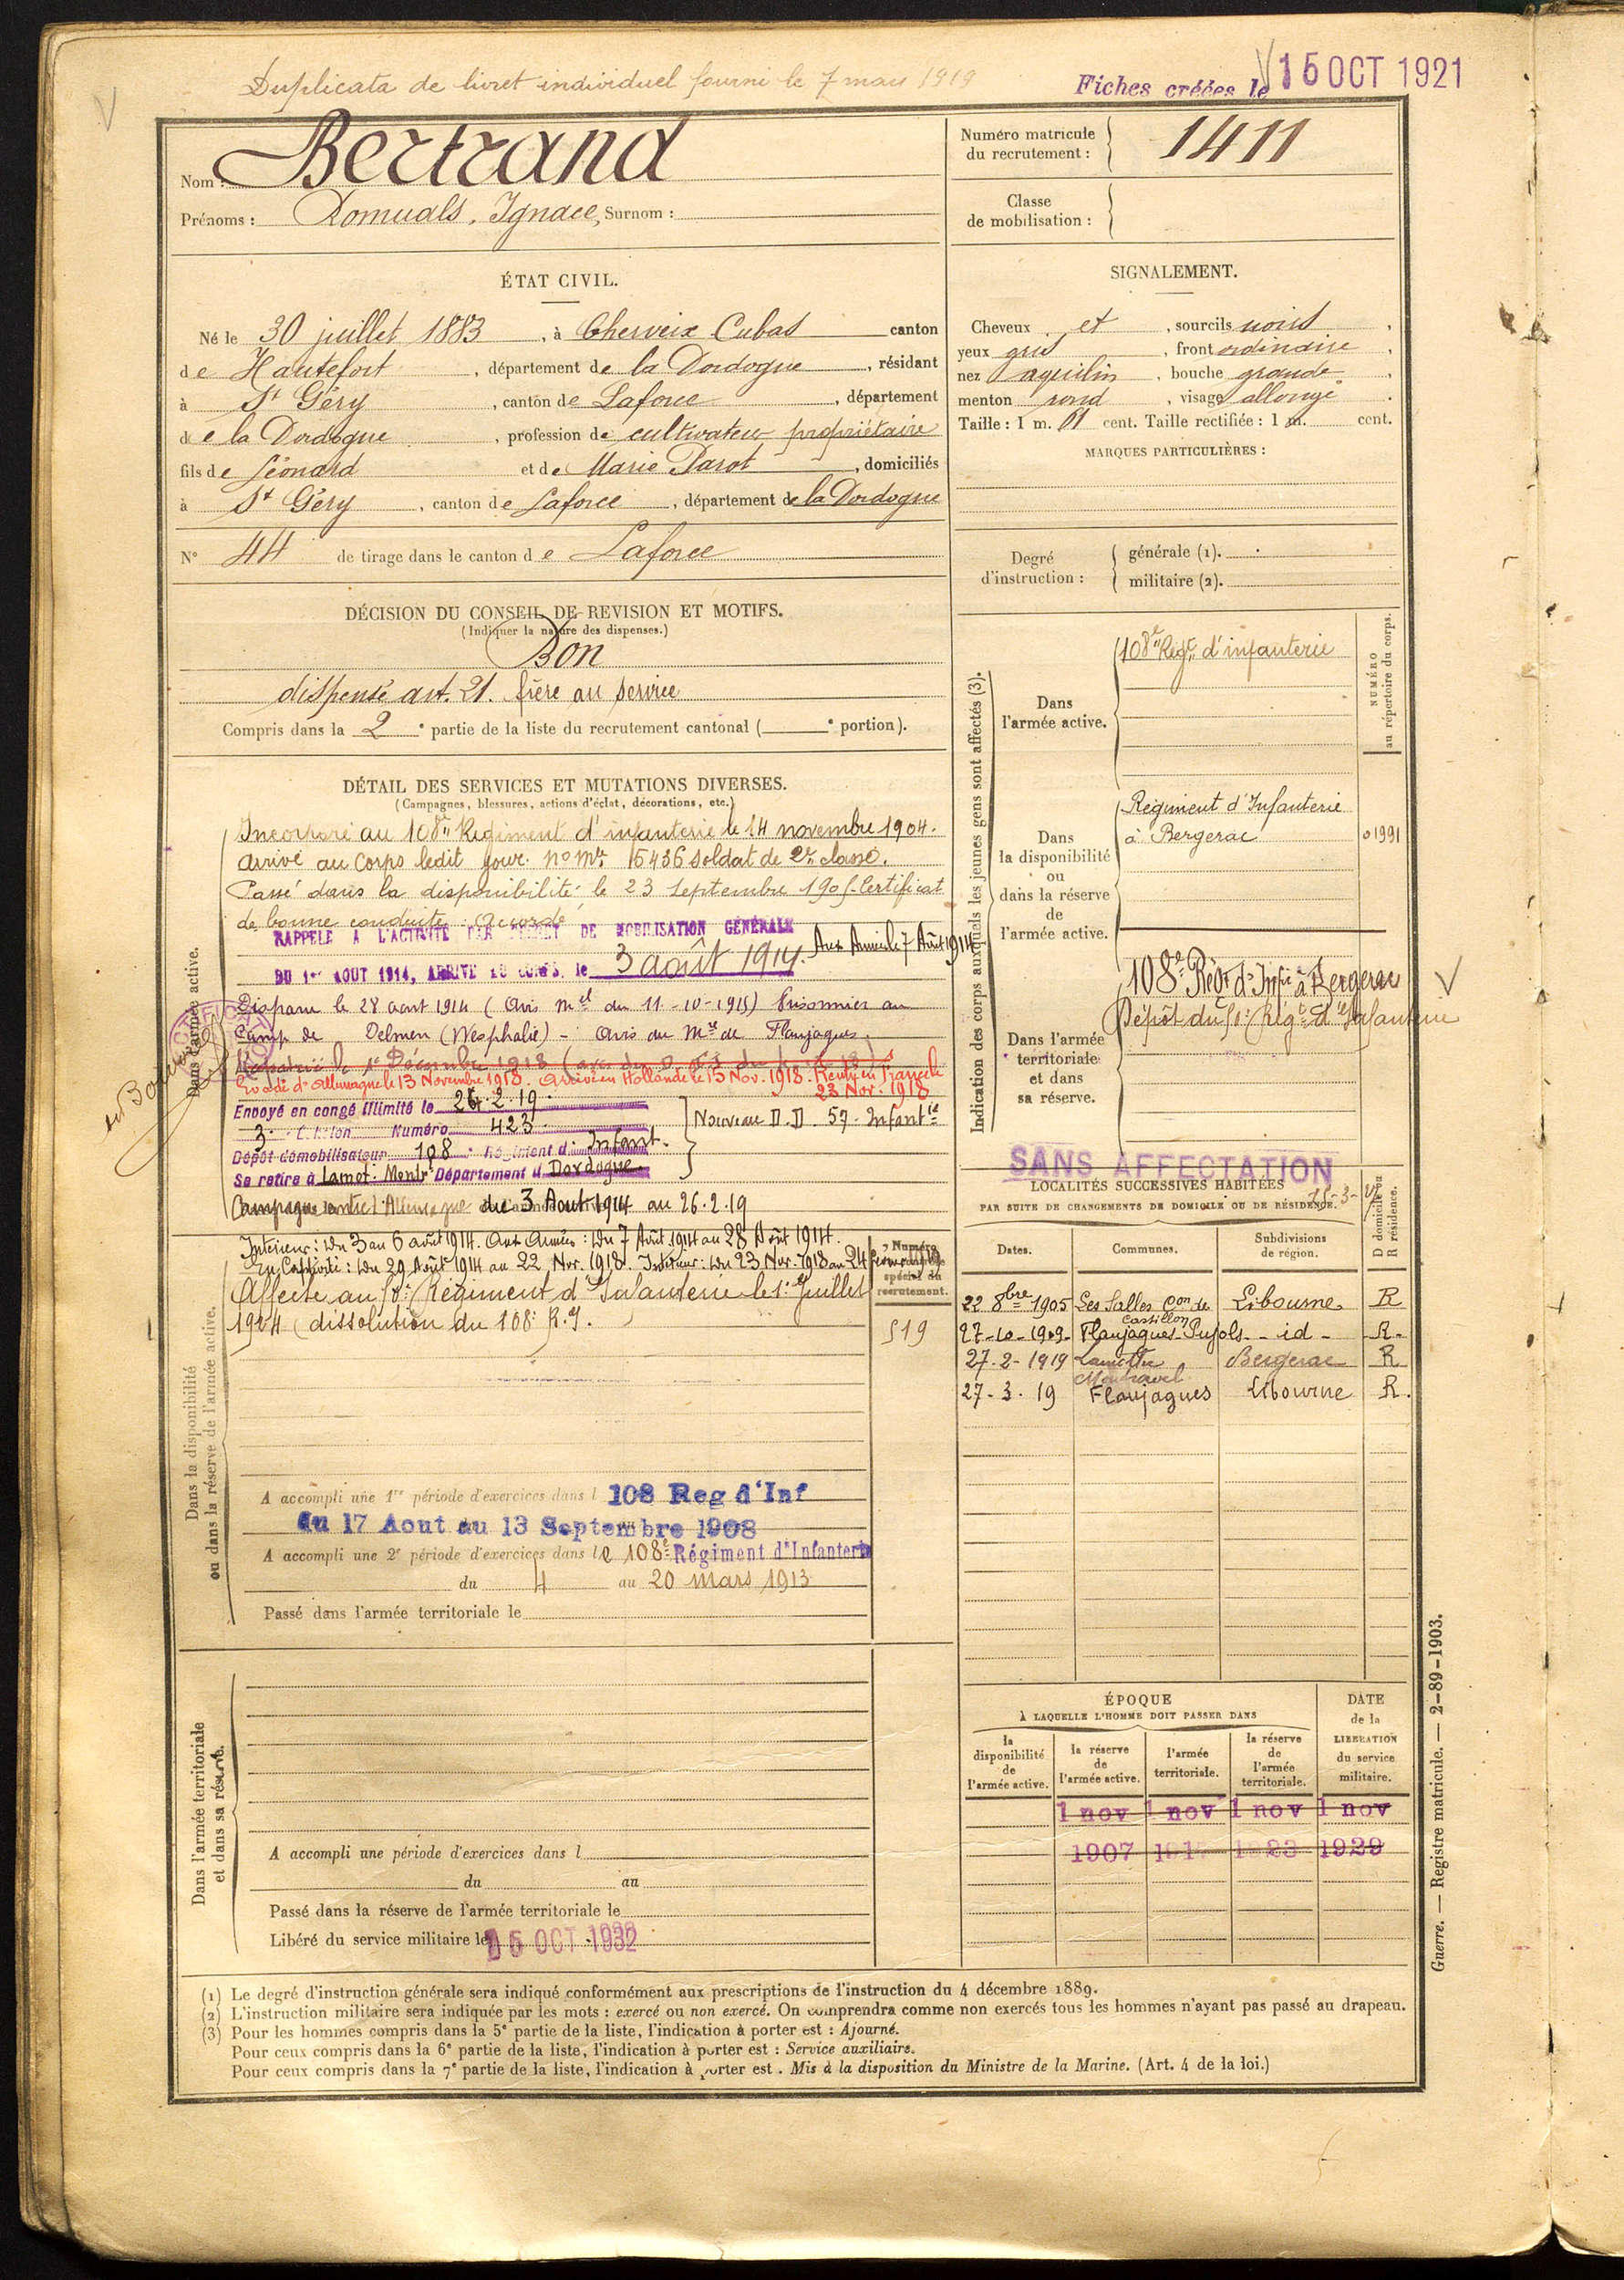 Duplicata de livret individuel fourni le 7 mars 1919
Fiches créées le 15 OCT 1921
Nom : Bertrand
Prénoms : Romuald, Ignace, Surnom :
Numéro matricule du recrutement : 1411
Classe de mobilisation :
ÉTAT CIVIL.
Né le 30 juillet 1883, à Cherveix Cubas canton
de Hautefort, département de la Dordogne, résidant
à St Géry, canton de Laforce, département
de la Dordogne, profession de cultivateur propriétaire
fils de Léonard et de Marie Parot, domiciliés
à St Géry, canton de Laforce, département de la Dordogne
N° 44 de tirage dans le canton de Laforce
SIGNALEMENT.
Cheveux et, sourcils noirs,
yeux gris, front ordinaire,
nez aquilin, bouche grande,
menton rond, visage allongé.
Taille : 1 m. 61 cent. Taille rectifiée : 1 m. cent.
MARQUES PARTICULIÈRES :
Degré d'instruction :
générale (1).
militaire (2).
DÉCISION DU CONSEIL DE REVISION ET MOTIFS.
(Indiquer la nature des dispenses.)
Bon
dispensé art. 21. frère au service
Compris dans la 2e partie de la liste du recrutement cantonal ( e portion).
DÉTAIL DES SERVICES ET MUTATIONS DIVERSES.
(Campagnes, blessures, actions d'éclat, décorations, etc.)
Dans l'armée active.
Incorporé au 108e Régiment d'infanterie le 14 novembre 1904.
arrivé au corps ledit jour. no mle 15436 soldat de 2e classe.
Passé dans la disponibilité le 23 septembre 1905. Certificat
de bonne conduite : accordé
RAPPELÉ A L'ACTIVITÉ PAR DÉCRET DE MOBILISATION GÉNÉRALE
DU 1er AOUT 1914, ARRIVÉ AU CORPS le 3 août 1914. Aux Armées le 7 Août 1914
Disparu le 28 aout 1914 (avis mel du 11-10-1915) Prisonnier au
Camp de Delmen (Wesphalie) - avis du Mre de Flaujagues.
Rapatrié le 1er Décembre 1918
Evadé d'Allemagne le 13 Novembre 1918. Arrivé en Hollande le 15 Nov. 1918. Rentré en France le
23 Nov. 1918
Envoyé en congé illimité le 26.2.19.
3e Echelon Numéro 423
Dépôt démobilisateur 108e Régiment d'Infant.
Se retire à Lamot. Montr Département d Dordogne.
Nouveau D.D. 57e Infantie
Campagne contre l'Allemagne du 3 Aout 1914 au 26.2.19
Intérieur : du 3 au 6 août 1914. Aux Armées : du 7 Août 1914 au 28 Août 1914.
En Captivité : du 29 Août 1914 au 22 Nov. 1918. Intérieur : du 23 Nov. 1918 au 24
Dans la disponibilité ou dans la réserve de l'armée active.
Affecté au 50e Régiment d'Infanterie le 1er Juillet
1924 (dissolution du 108e R.I.)
519
A accompli une 1re période d'exercices dans l 108 Reg d'Inf
du 17 Aout au 13 Septembre 1908
A accompli une 2e période d'exercices dans le 108e Régiment d'Infanterie
du 4 au 20 mars 1913
Passé dans l'armée territoriale le
Dans l'armée territoriale et dans sa réserve.
A accompli une période d'exercices dans l
du au
Passé dans la réserve de l'armée territoriale le
Libéré du service militaire le 15 OCT 1932
Indication des corps auxquels les jeunes gens sont affectés (3).
NUMÉRO au répertoire du corps.
Dans l'armée active.
108e Régt d'infanterie
Dans la disponibilité ou dans la réserve de l'armée active.
Régiment d'Infanterie
à Bergerac
01991
Dans l'armée territoriale et dans sa réserve.
108e Régt d'Infie à Bergerac
Dépôt du 50e Régt d'Infanterie
SANS AFFECTATION
LOCALITÉS SUCCESSIVES HABITÉES
PAR SUITE DE CHANGEMENTS DE DOMICILE OU DE RÉSIDENCE.
Dates. Communes. Subdivisions de région. D domicile ou R résidence.
22 8bre 1905 Les Salles Con de Castillon Libourne R
27-10-1909 Flaujagues Pujols - id - R.
27-2-1919 Lamothe Montravel Bergerac R
27-3-19 Flaujagues Libourne R.
ÉPOQUE
À LAQUELLE L'HOMME DOIT PASSER DANS
la disponibilité de l'armée active.
la réserve de l'armée active.
l'armée territoriale.
la réserve de l'armée territoriale.
DATE de la LIBÉRATION du service militaire.
1 nov 1 nov 1 nov 1 nov
1907 1923 1929
(1) Le degré d'instruction générale sera indiqué conformément aux prescriptions de l'instruction du 4 décembre 1889.
(2) L'instruction militaire sera indiquée par les mots : exercé ou non exercé. On comprendra comme non exercés tous les hommes n'ayant pas passé au drapeau.
(3) Pour les hommes compris dans la 5e partie de la liste, l'indication à porter est : Ajourné.
Pour ceux compris dans la 6e partie de la liste, l'indication à porter est : Service auxiliaire.
Pour ceux compris dans la 7e partie de la liste, l'indication à porter est . Mis à la disposition du Ministre de la Marine. (Art. 4 de la loi.)
Guerre. — Registre matricule. — 2-89-1903.